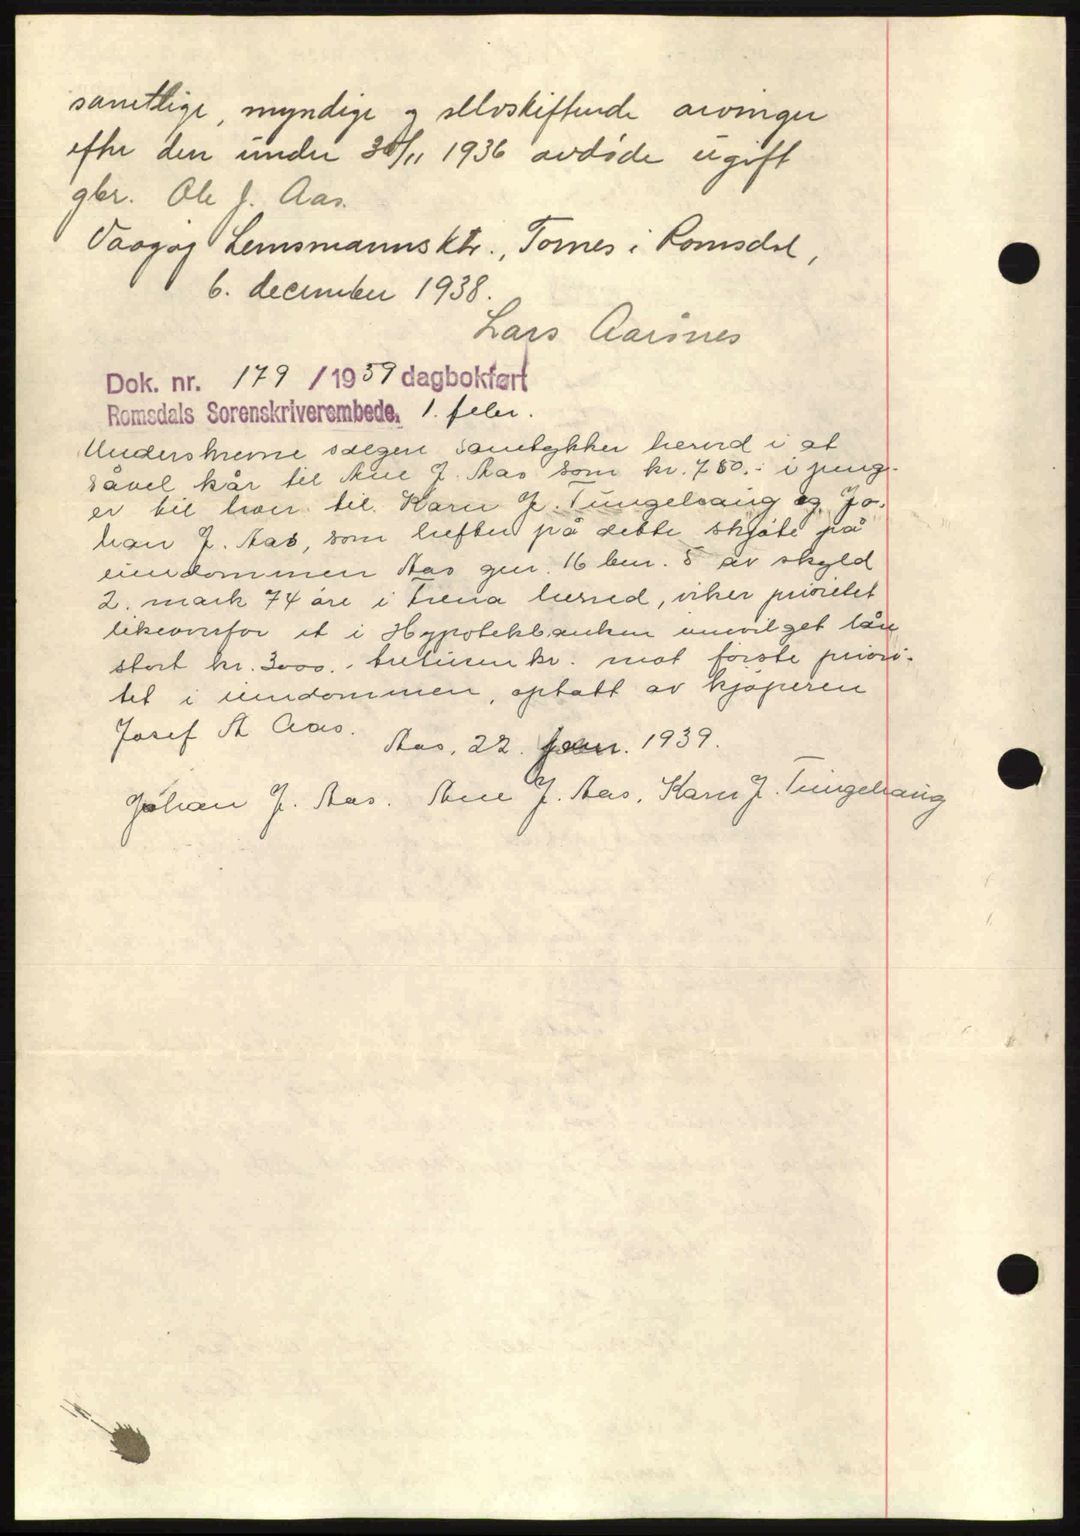 samtlige, myndige og selvskiftende arvinger
efter den under 30/11 1936 avdøde ugift
gbr. Ole J. Aas.
Vaagøy Lensmannsktr., Tornes i Romsdal,
6. december 1938.
Lars Aarsnes
Dok. nr. 179 /1939 dagbokført
Romsdals Sorenskriverembede, 1. febr.
Underskrevne sælgere samtykker herved i at
såvel kår til Ane J. Aas som kr. 750.- i peng-
er til hver til Karn J. Tungelvaag og Jo-
han J. Aas, som hefter på dette skjøte på
eiendommen Aas gnr. 16 bnr. 5 av skyld
2. mark 74 øre i Fræna herred, viker prioritet
likeoverfor et i Hypotekbanken innvilget lån
stort kr. 3000.- tretusen kr. mot første priori-
tet i eiendommen, optatt av kjøperen
Josef A Aas.
Aas, 22. 1939.
Johan J. Aas. Ane J. Aas. Karn J. Tungelvaag